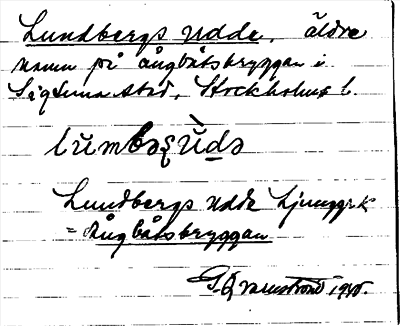 Lundbergs udde, äldre
namn på ångbåtsbryggan i
Sigtuna stad, Stockholms l.
Lundbergs udde Ljunggrk
= Ångbåtsbryggan
G. Qvarnström 1910.